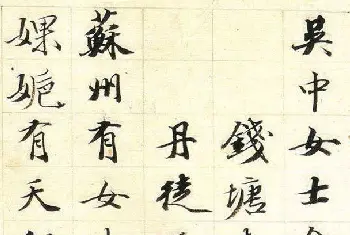 吳中女士
錢塘
丹徒
蘇州有女
婐有天